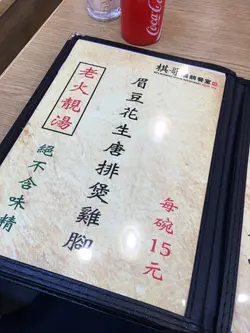 Coca-Cola
棋哥
燒鵝餐室
每碗15元
眉豆花生唐排煲雞腳
老火靚湯
絕不含味精